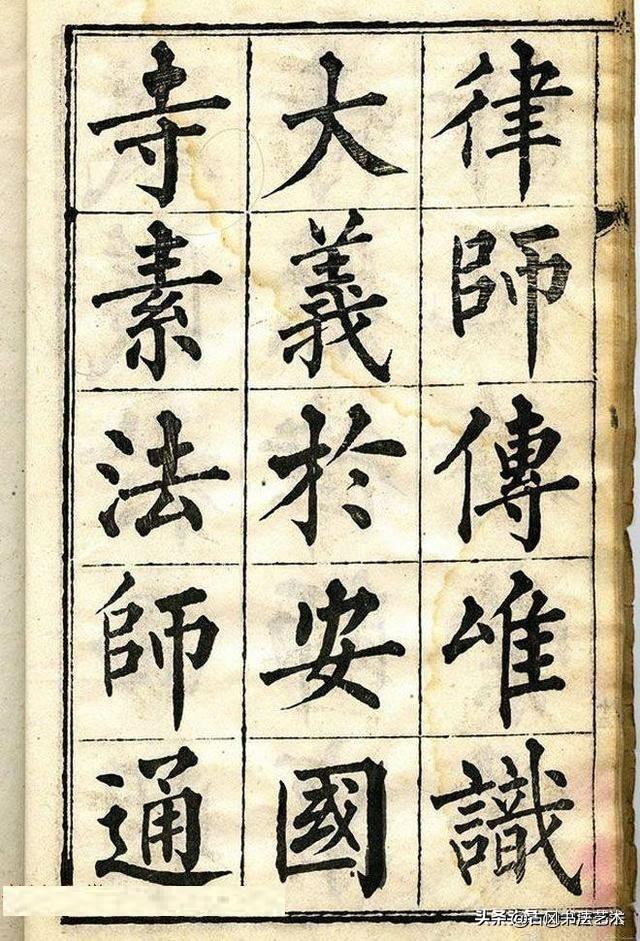 律師傳唯識
大義於安國
寺素法師通
头条@古风书法艺术